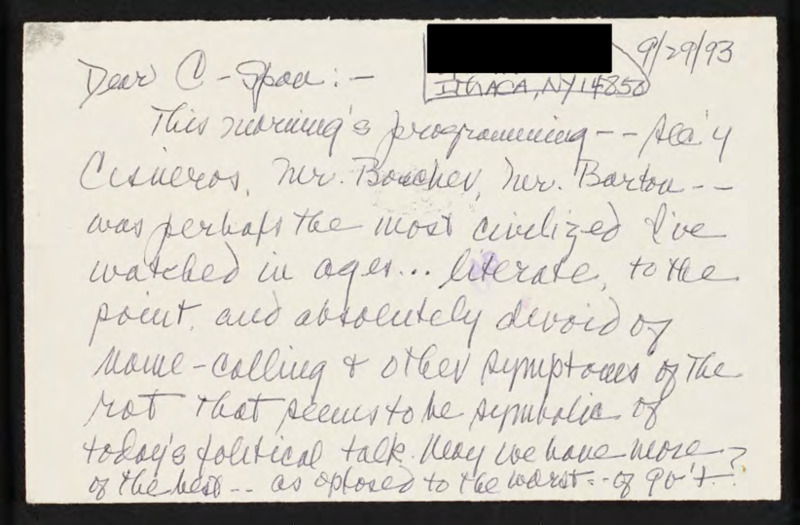 9/29/93
ITHACA, NY 14850
Dear C-Span:-
This morning's programming -- Sec'y
Cisneros, Mr. Boucher, Mr. Barton --
was perhaps the most civilized I've
watched in ages... literate, to the
point, and absolutely devoid of
name-calling & other symptoms of the
rot that seems to be symbolic of
today's political talk. May we have more
of the best -- as opposed to the worst -- of gov't?